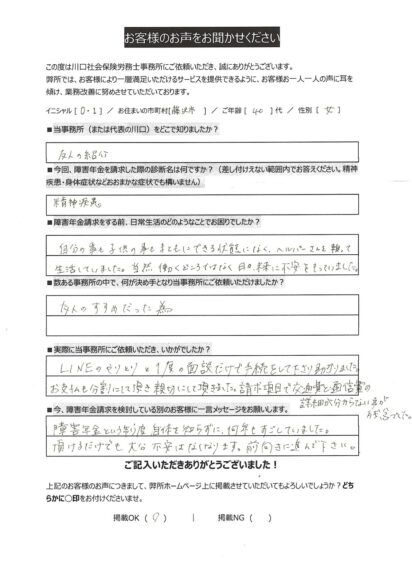 お客様のお声をお聞かせください
この度は川口社会保険労務士事務所にご依頼いただき、誠にありがとうございます。
弊所では、お客様により一層満足いただけるサービスを提供できるように、お客様お一人一人の声に耳を
傾け、業務改善に努めさせていただいております。
イニシャル [O・I] / お住まいの市町村 [藤沢市] / ご年齢 [40] 代 / 性別 [女]
■当事務所（または代表の川口）をどこで知りましたか？
友人の紹介
■今回、障害年金を請求した際の診断名は何ですか？（差し付けえない範囲内でお答えください。精神
疾患・身体症状などおおまかな症状でも構いません）
精神疾患。
■障害年金請求をする前、日常生活のどのようなことでお困りでしたか？
自分の事も子供の事もまともにできる状態になく、ヘルパーさんを頼って
生活していました。当然、働くどころではなく日々、将来に不安をもっていました。
■数ある事務所の中で、何が決め手となり当事務所にご依頼いただけましたか？
友人のすすめだった為
■実際に当事務所にご依頼いただき、いかがでしたか？
LINEのやりとりと1度の面談だけで手続をして下さり助かりました。
お支払も分割にして頂き親切にして頂きました。請求項目で交通費と通信費の
詳細が分からない点が
■今、障害年金請求を検討している別のお客様に一言メッセージをお願いします。
障害年金という制度自体を知らずに、何年もすごしていました。
頂けるだけでも大分不安はなくなります。前向きに進んで下さい。
ご記入いただきありがとうございました！
上記のお客様のお声につきまして、弊所ホームページ上に掲載させていただいてもよろしいでしょうか？どち
らかに〇印をお付けくださいませ。
掲載OK（ ○ ） | 掲載NG（ ）